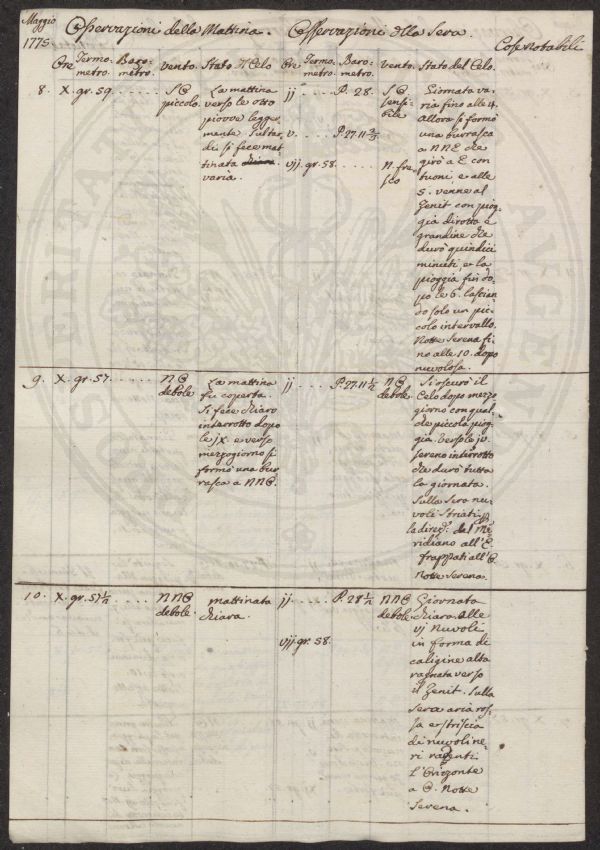 Maggio
1775
Osservazioni della Mattina. Osservazioni dlla Sera.
Cose Notabili
Ore Termo- metro. Baro- metro. vento. Stato dl Celo Ore Termo- metro. Baro- metro. vento. Stato del Celo.
8. X. gr. 59 . . . . . . S@ piccolo.
La mattina
verso le otto
piovve legger
mente. Tutta
dì si fece mat
tinata chiara
varia.
jj . . . . P. 28. S@ sensi- bile
v. . . . . P. 27. 11
vjj. gr. 58. . . . . . N fre- sco
Giornata va-
ria fino alle 4.
Allora si formò
una burrasca
a NNE che
girò a E con
tuoni e alle
5. venne al
Zenit con piog-
gia dirotta e
grandine che
durò quindici
minuti, e la
pioggia fin do-
po le 6. lascian-
do solo un pic-
colo intervallo.
Notte Serena fi
no alle 10. dopo
nuvolosa.
9. X. gr. 57. . . . . . N@ debole
La mattina
fu coperta.
Si fece chiaro
interrotto dopo
le jx. e verso
mezzogiorno si
formò una bur
rasca a NN@.
jj . . . . P. 27. 11 1/2 N@ debole.
Si oscurò il
Celo dopo mezzo
giorno con qual-
che piccola piog-
gia. Verso le jv.
sereno interrotto
che durò tutta
la giornata.
Sulla Sera nu-
vole striati p
la direz. del Me
ridiano all'E.
frappati all'@.
Notte Serena.
10. X. gr. 57 1/2 . . . . NN@ debole.
mattinata
chiara.
jj . . . . . P. 28 NN@ debole
vjj gr. 58.
Giornata
chiara. Alle
vj Nuvoli
in forma di
caligine alta
ragnata verso
il Zenit. Sulla
Sera aria ros-
sa e striscia
di nuvoli ne-
ri rasenti
L'Orizzonte
a @. Notte
Serena.